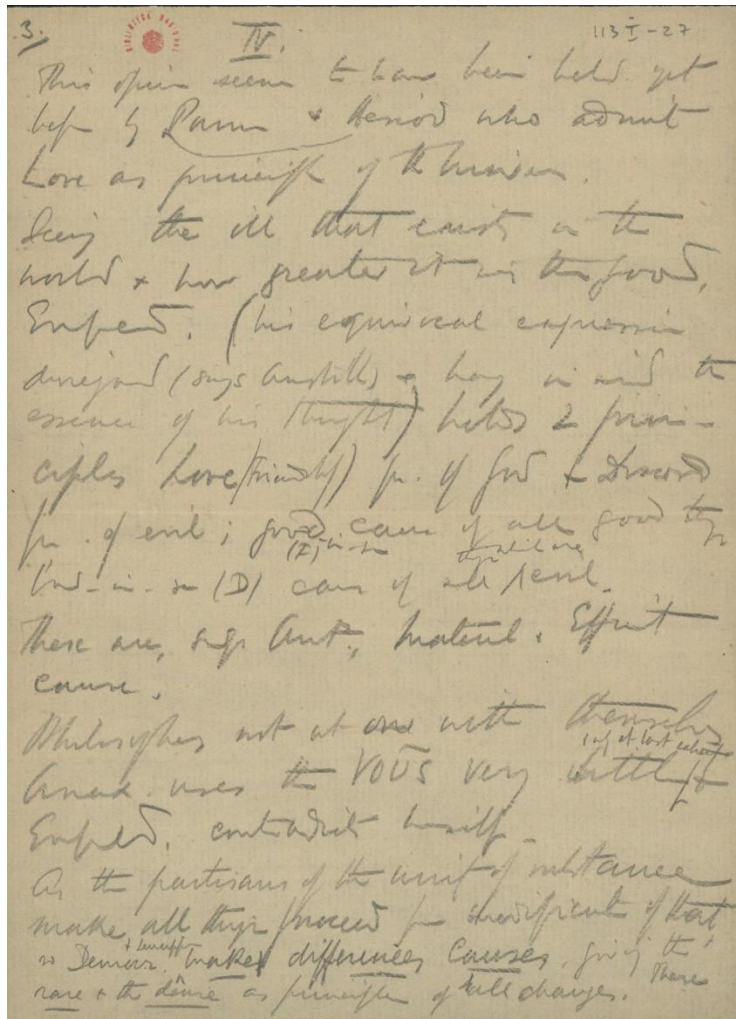 3.
BIBLIOTECA NACIONAL
113 I - 27
IV.
This opin. seems to have been held yet
bef. by Parm. + Hesiod who admit
Love as principle of the Universe.
Seeing the ill that exists in the
world + how greater it is than good,
Emped. (his equivocal expression
disregard (says Aristotle) + having in mind the
essence of his thought) holds 2 prin-
ciples Love (Friendship) pr. of good + Discord
pr. of evil; good-in-se cause of all good things
(F)
bad-in-se (D) cause of all evil.
These are, says Arist., material + Efficient
cause.
Philosophers not at one with themselves
Anax. uses the νοῦς very little
Emped. contradicts himself.
As the partisans of the unit of substance
make all things proceed fr. modificat. of that
so Democr. makes differences causes, giving the
rare + the dense as principles of all changes. These